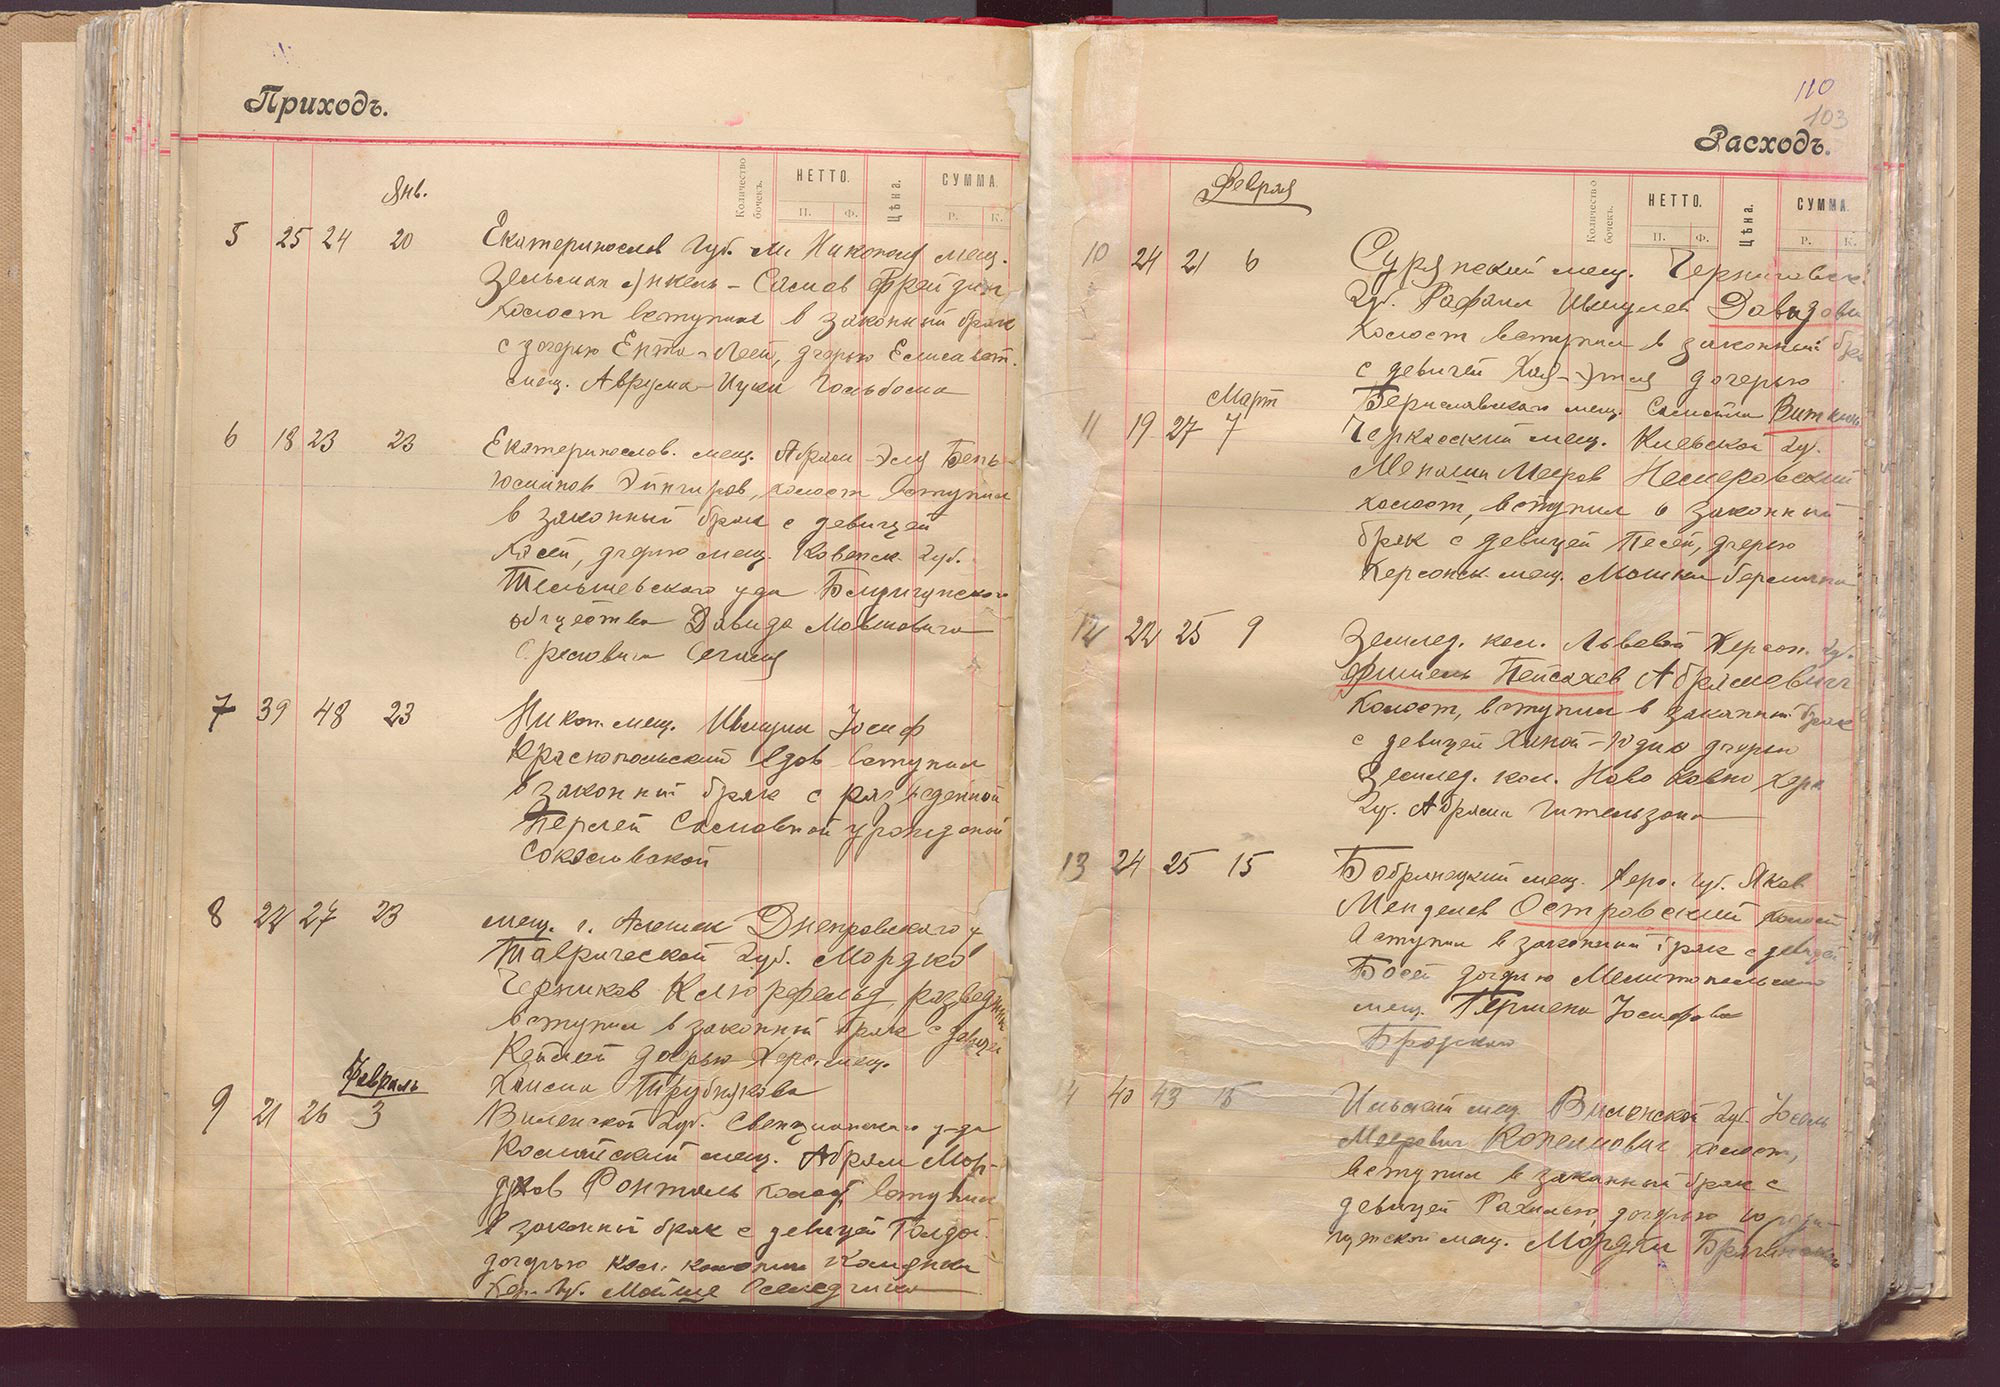 Приходъ.
Количество бочекъ.
НЕТТО.
П. Ф.
Цѣна.
СУММА.
Р. К.
Янв.
5 25 24 20 Екатеринослов губ. м. Никополя мещ.
Зельман Янкель-Сасиев Фрейдин
холост вступил в законный брак
с дочерью Ента-Леей, дчерью Елисавет.
мещ. Аврума-Ицки Гольбема
6 18 23 23 Екатеринослов. мещ. Абрам-Эля Бень-
холост вступил
в законный брак с девицей
Хасей, дчерью мещ. Ковенск. Губ.
Тельшевского уда
общества Давида Мовшовича
7 39 48 23 Никоп. мещ. Ицик Иосиф
Краснопольский вдов вступил
в законный брак с разведенной
Перлей урожденной
Соколовской
8 22 27 23 мещ. г. Алешек Днепровского у
Таврической Губ. Мордко
Черников разведенный
вступил в законный брак с девицей
Кейлей дочерью Херс. мещ.
Хаима Трубникова
Февраль
9 21 26 3 Виленской Губ. Свенцианского у-да
мещ. Абрам Мор-
духов Ронталь холост, вступил
в законный брак с девицей Голдой
дочерью кол. колонии Каменки
Хер. Губ. Мойше
110
103
Расходъ.
Количество бочекъ.
НЕТТО.
П. Ф.
Цѣна.
СУММА.
Р. К.
Февраля
10 24 21 6 мещ. Черниговск.
Губ. Рафаил Шмулев
холост вступил в законный
с девицей Хая-Этля дочерью
Бериславского мещ. Самойла
Март
11 19 27 7 Черкасский мещ. Киевской Губ.
Менаши Мееров Немеровский
холост, вступил в законный
брак с девицей Песей, дчерью
Херсонск. мещ. Мошки
12 22 25 9 Землед. кол. Львовой Херсон. Губ.
Фишель Пейсахов Абрамович
холост, вступил в законный брак
с девицей Ханой-Юдио дчерью
Землед. кол. Ново Ковно Хер
Губ. Абрама Гительзона
13 24 25 15 Бобринецкий мещ. Херс. Губ. Яков
Менделев Островский холост
вступил в законный брак с девицей
Босей дочерью Мелитопольского
мещ. Иосифова
Бродского
40 43 15 мещ. Виленской Губ. Иосель
Меерович Копелиович холост,
вступил в законный брак с
девицей Рахилью, дочерью
мещ. Мордки